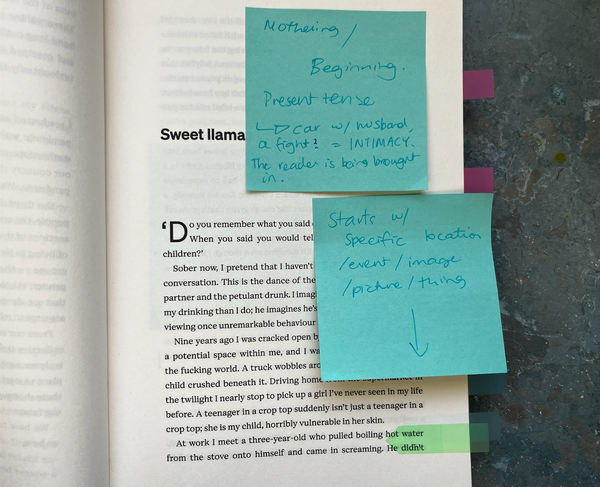 Mothering /
Beginning.
Present tense
↳ car w/ husband,
a fight? = INTIMACY.
The reader is being brought
in.
Sweet llama
Starts w/
Specific location
/event/image
/picture/thing
‘Do you remember what you said
When you said you would tel
children?’
Sober now, I pretend that I haven’t
conversation. This is the dance of the
partner and the petulant drunk. I imagi
my drinking than I do; he imagines he’s
viewing once unremarkable behaviour
Nine years ago I was cracked open b
a potential space within me, and I wa
the fucking world. A truck wobbles aro
child crushed beneath it. Driving home from the supermarket in
the twilight I nearly stop to pick up a girl I’ve never seen in my life
before. A teenager in a crop top suddenly isn’t just a teenager in a
crop top; she is my child, horribly vulnerable in her skin.
At work I meet a three-year-old who pulled boiling hot water
from the stove onto himself and came in screaming. He didn’t